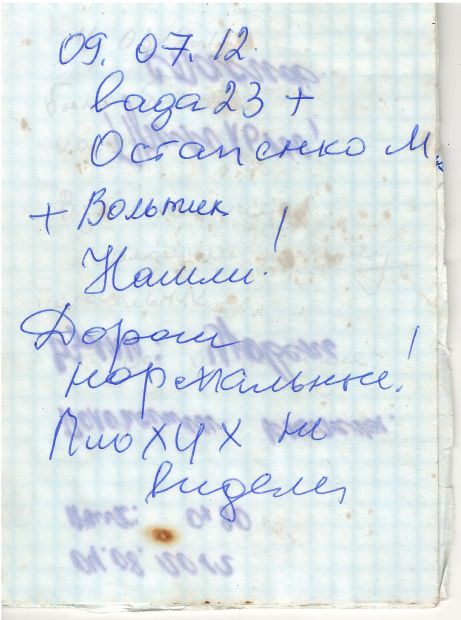 09.07.12.
вада23 +
Остапенко М.
+ Вольтик
Нашли!
Дороги
нормальные!
Плохих не
видели